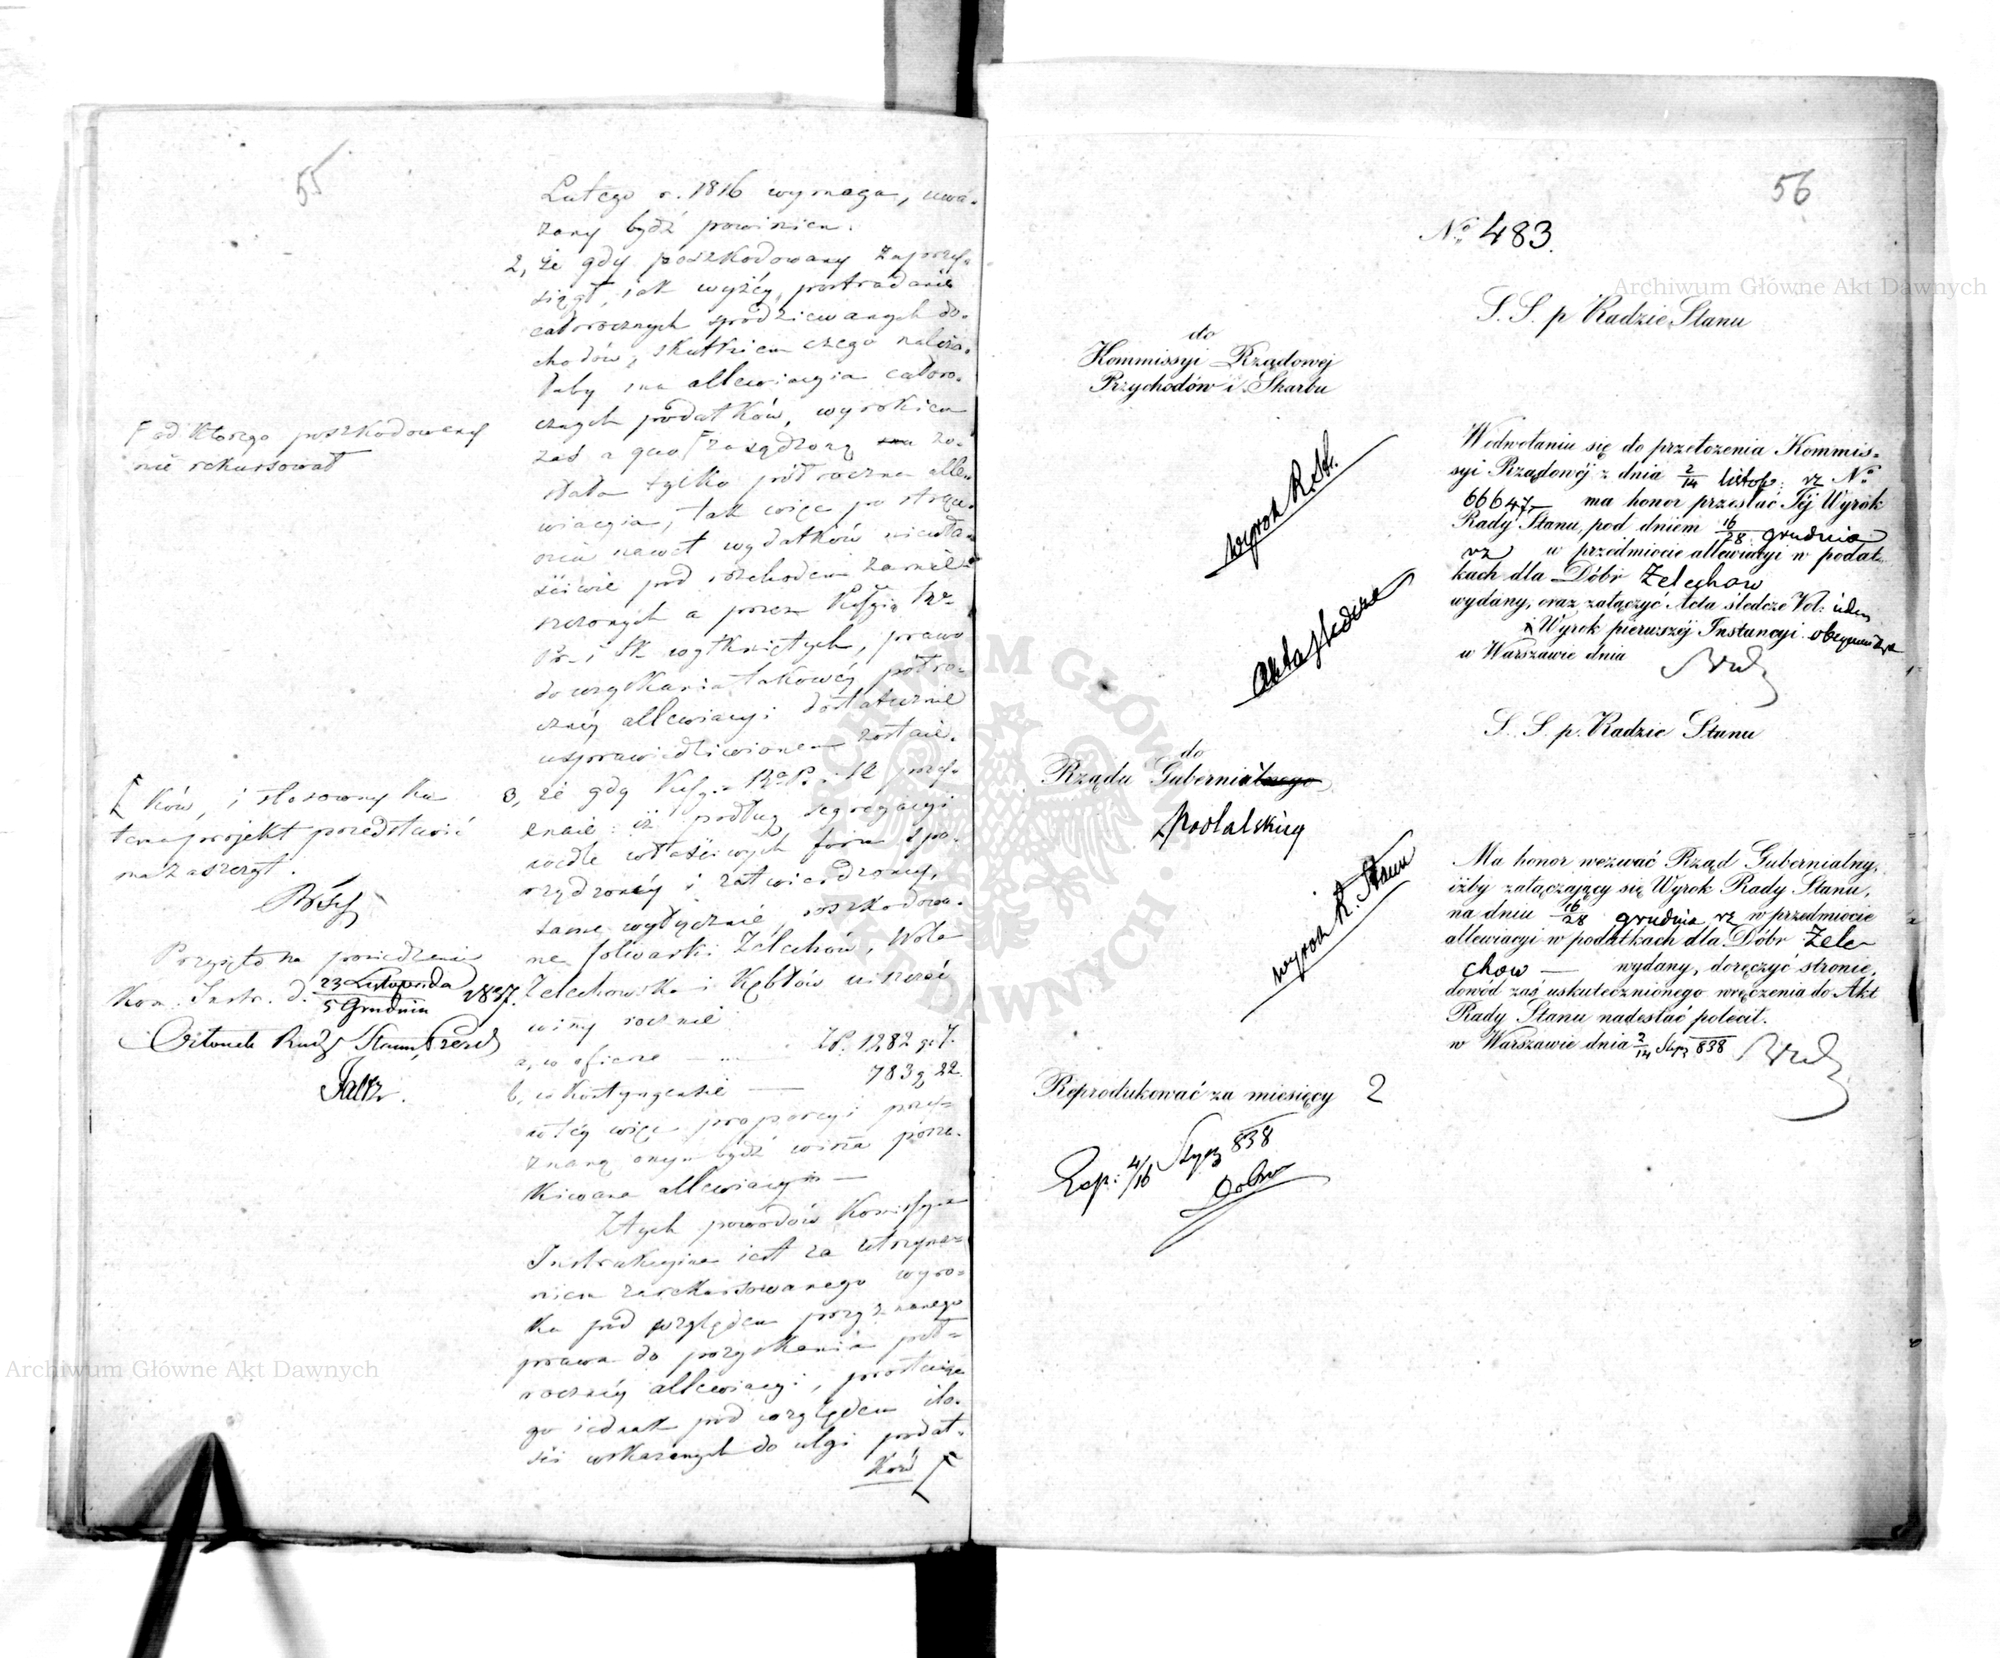 55
Lutego r. 1816 wymaga, uwa-
żany bydź powinien.
2, że gdy poszkodowany zaprzy-
siągł, iak wyżéy, postradanie
całorocznych spodziewanych do-
chodów, skutkiem czego należa-
łaby mu allewiacyia całoro-
cznych podatków, wyrokiem
zaś a quo zasądzoną zo-
stała tylko półroczna alle-
wiacyia, tak więc po strące-
niu nawet wydatków niewła-
ściwie pod rozchodem zamie-
szczonych a przez Kssyią Rz.
Pr. i Sk. wytkniętych, prawo
do uzyskania takowéy półro-
cznéy allewiacyi dostatecznie
usprawiedliwionem zostaie.
3, że gdy Kssyia R. P. i Sk
znaie: iż podług segregacyi
wedle właściwych form spo-
rządzonéy i zatwierdzonéy,
same wyłącznie poszkodowa-
ne folwarki Zelechów, Wola
Zelechowska i Kębłów uiszczać
winny rocznie
a, w ofierze — Zł. 1282 g. 7.
b, w kontyngensie — 783 g. 22.
w téy więc proporcyi
znaną onym bydź winna poszu-
kiwana allewiacyia —
Z tych powodów Kommissyia
Instrukcyina iest za utrzyma-
niem zarekursowanego wyro-
ku pod względem przyznanego
prawa do pozyskania pół-
rocznéy allewiacyi, prostuiąc
go iednak pod względem ilo-
ści wskazanych do ulgi podat-
ków
od którego poszkodowany
nie rekursował
ków, i stosowny ku
temu projekt przedstawić
na zaszczyt.
Przyjęto na posiedzeniu
Kom. Instr. d. 23 Listopada / 5 Grudnia 1837.
Członek Rady Stanu, Prezd
56
No. 483.
S. S. p Radzie Stanu
do
Kommissyi Rządowej
Przychodów i Skarbu
Wodwołaniu się do przełożenia Kommis-
syi Rządowéj z dnia 2/14 listop: rz No
66647 ma honor przesłać Téj Wyrok
Rady Stanu, pod dniem 16/28 grudnia
rz w przedmiocie allewiacyi w podat-
kach dla Dóbr Zelechow
wydany, oraz załączyć Acta śledcze Vol: iden
i Wyrok pierwszéj Instancyi obeymujące
w Warszawie dnia
wyrok R. St.
Akta śledcze
S. S. p. Radzie Stanu
do
Rządu Gubernialnego
Podlaskiego
Ma honor wezwać Rząd Gubernialny,
iżby załączający się Wyrok Rady Stanu,
na dniu 16/28 grudnia rz w przedmiocie
allewiacyi w podatkach dla Dóbr Zele-
chow — wydany, doręczyć stronie,
dowód zaś uskutecznionego wręczenia do Akt
Rady Stanu nadesłać polecił.
w Warszawie dnia 2/14 Stycz 838
wyrok R. Stanu
Reprodukować za miesięcy 2
Exp: 4/16 Stycz 838
Archiwum Główne Akt Dawnych
Archiwum Główne Akt Dawnych
ARCHIWUM GŁÓWNE AKT DAWNYCH